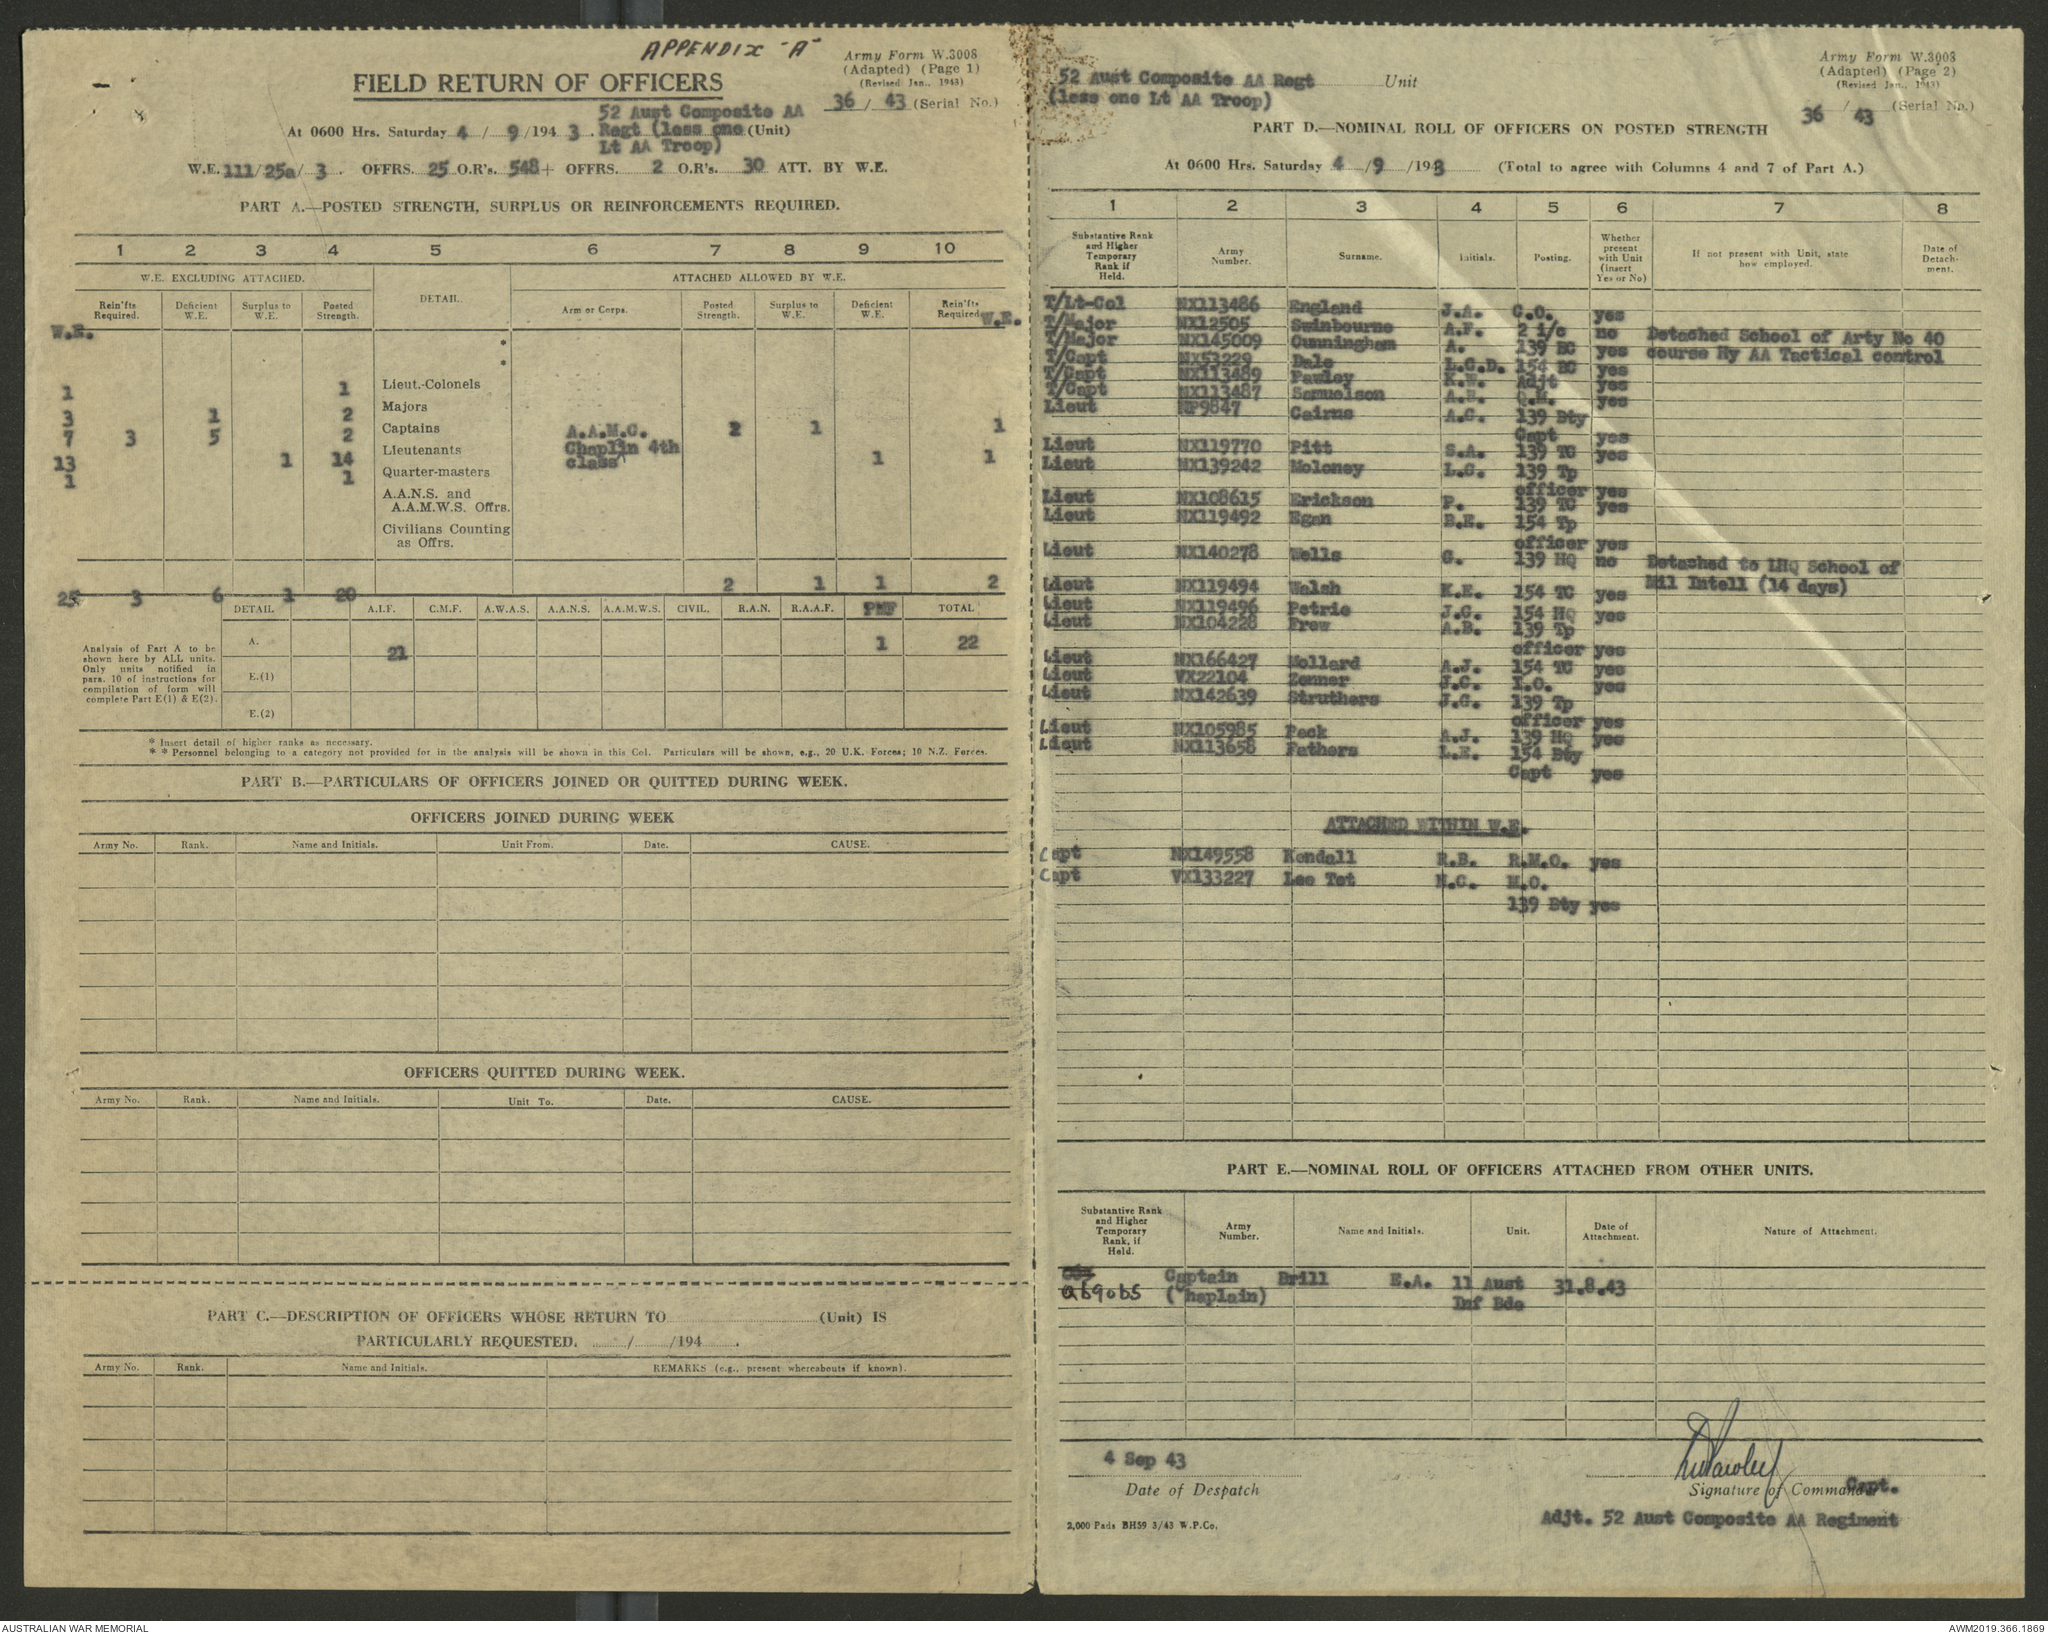 APPENDIX "A"
Army Form W.3008
(Adapted) (Page 1)
(Revised Jan., 1943)
FIELD RETURN OF OFFICERS
36 / 43 (Serial No.)
52 Aust Composite AA
At 0600 Hrs. Saturday 4 / 9 /194 3 Regt (less one (Unit)
Lt AA Troop)
W.E. 111/25a/ 3 . OFFRS. 25 O.R's. 548+ OFFRS. 2 O.R's. 30 ATT. BY W.E.
PART A.—POSTED STRENGTH, SURPLUS OR REINFORCEMENTS REQUIRED.
1 2 3 4 5 6 7 8 9 10
W.E. EXCLUDING ATTACHED. DETAIL. ATTACHED ALLOWED BY W.E.
Rein'fts Required. Deficient W.E. Surplus to W.E. Posted Strength. Arm or Corps. Posted Strength. Surplus to W.E. Deficient W.E. Rein'fts Required.
W.E. W.E.
*
*
1 1 Lieut.-Colonels
3 1 2 Majors
7 3 5 2 Captains A.A.M.C. 2 1 1
13 1 14 Lieutenants Chaplin 4th class 1 1
1 1 Quarter-masters
A.A.N.S. and
A.A.M.W.S. Offrs.
Civilians Counting
as Offrs.
25 3 6 1 20 2 1 1 2
DETAIL A.I.F. C.M.F. A.W.A.S. A.A.N.S. A.A.M.W.S. CIVIL. R.A.N. R.A.A.F. PMF TOTAL
Analysis of Part A to be
shown here by ALL units.
Only units notified in
para. 10 of instructions for
compilation of form will
complete Part E(1) & E(2).
A. 21 1 22
E.(1)
E.(2)
* Insert detail of higher ranks as necessary.
* * Personnel belonging to a category not provided for in the analysis will be shown in this Col. Particulars will be shown, e.g., 20 U.K. Forces; 10 N.Z. Forces.
PART B.—PARTICULARS OF OFFICERS JOINED OR QUITTED DURING WEEK.
OFFICERS JOINED DURING WEEK
Army No. Rank. Name and Initials. Unit From. Date. CAUSE.
OFFICERS QUITTED DURING WEEK.
Army No. Rank. Name and Initials. Unit To. Date. CAUSE.
PART C.—DESCRIPTION OF OFFICERS WHOSE RETURN TO (Unit) IS
PARTICULARLY REQUESTED. / /194 .
Army No. Rank. Name and Initials. REMARKS (e.g., present whereabouts if known).
52 Aust Composite AA Regt Unit
(less one Lt AA Troop)
Army Form W.3008
(Adapted) (Page 2)
(Revised Jan., 1943)
36 / 43 (Serial No.)
PART D.—NOMINAL ROLL OF OFFICERS ON POSTED STRENGTH
At 0600 Hrs. Saturday 4 / 9 /1943 (Total to agree with Columns 4 and 7 of Part A.)
1 2 3 4 5 6 7 8
Substantive Rank and Higher Temporary Rank if Held. Army Number. Surname. Initials. Posting. Whether present with Unit (insert Yes or No) If not present with Unit, state how employed. Date of Detachment.
T/Lt-Col NX113486 England J.A. C.O. yes
T/Major NX12505 Swinbourne A.F. 2 i/c no Detached School of Arty No 40
T/Major NX145009 Cunningham A. 139 BC yes course Hy AA Tactical control
T/Capt NX53229 Dale L.G.D. 154 BC yes
T/Capt NX113489 Pawley K.W. Adjt yes
T/Capt NX113487 Samuelson A.B. Q.M. yes
Lieut NP9847 Cairns A.C. 139 Bty
Capt yes
Lieut NX119770 Pitt S.A. 139 TC yes
Lieut NX139242 Moloney L.C. 139 Tp
officer yes
Lieut NX108615 Erickson P. 139 TC yes
Lieut NX119492 Egan B.E. 154 Tp
officer yes
Lieut NX140278 Wells G. 139 HQ no Detached to LHQ School of
Mil Intell (14 days)
Lieut NX119494 Walsh K.E. 154 TC yes
Lieut NX119496 Petrie J.C. 154 HQ yes
Lieut NX104228 Frew A.B. 139 Tp
officer yes
Lieut NX166427 Mollard A.J. 154 TC yes
Lieut VX22104 Zenner J.C. I.O. yes
Lieut NX142639 Struthers J.G. 139 Tp
officer yes
Lieut NX105985 Peck A.J. 139 HQ yes
Lieut NX113658 Fathers L.E. 154 Bty
Capt yes
ATTACHED WITHIN W.E.
Capt NX149558 Kendall R.B. R.M.O. yes
Capt VX133227 Lee Tet N.C. M.O.
139 Bty yes
PART E.—NOMINAL ROLL OF OFFICERS ATTACHED FROM OTHER UNITS.
Substantive Rank and Higher Temporary Rank, if Held. Army Number. Name and Initials. Unit. Date of Attachment. Nature of Attachment.
Captain Brill E.A. 11 Aust 31.8.43
(Chaplain) Inf Bde
4 Sep 43
Date of Despatch
Signature of Commander Capt.
Adjt. 52 Aust Composite AA Regiment
2,000 Pads BH59 3/43 W.P.Co.
AUSTRALIAN WAR MEMORIAL
AWM2019.366.1869